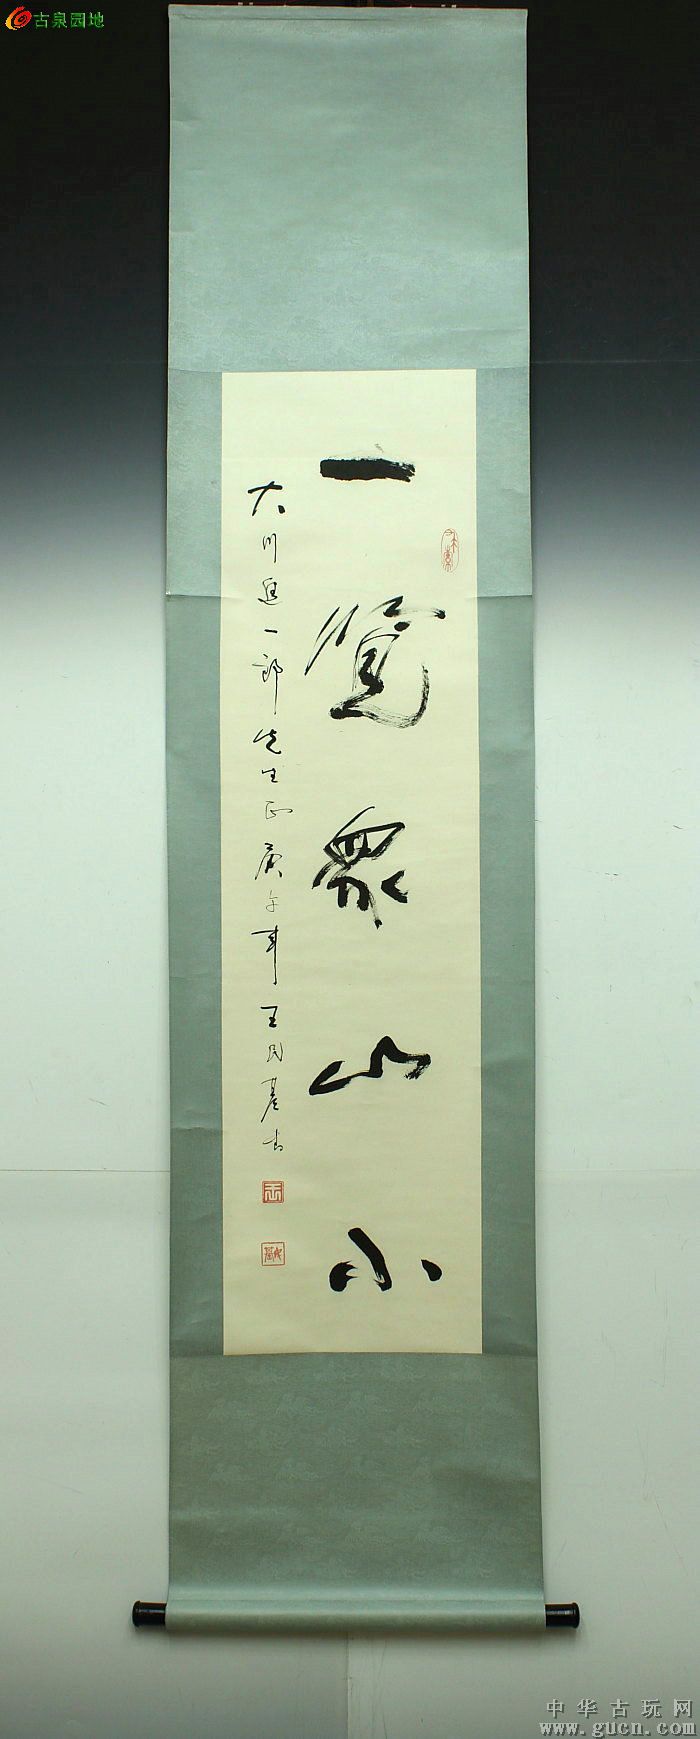 古泉园地
一览衆山小
大川進一郎先生正庚午年王民基書
中华古玩网
www.gucn.com